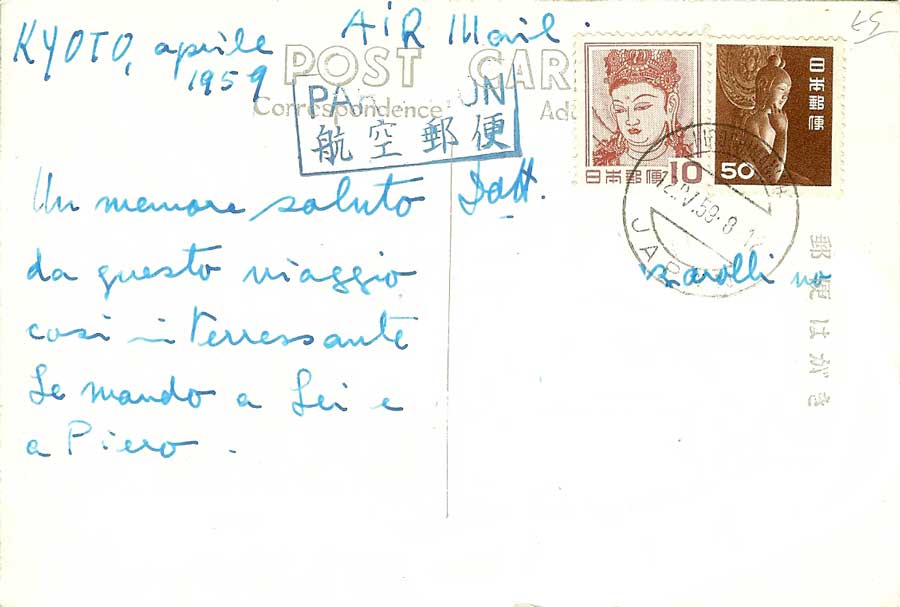 KYOTO, aprile
1959
AIR Mail.
POST CAR
Correspondence
PAR ON
航空郵便
日本郵便 10
日本郵便
50
JAPAN
郵便はがき
Un memore saluto
da questo viaggio
così interressante
Le mando a Lei e
a Piero.
Dott.